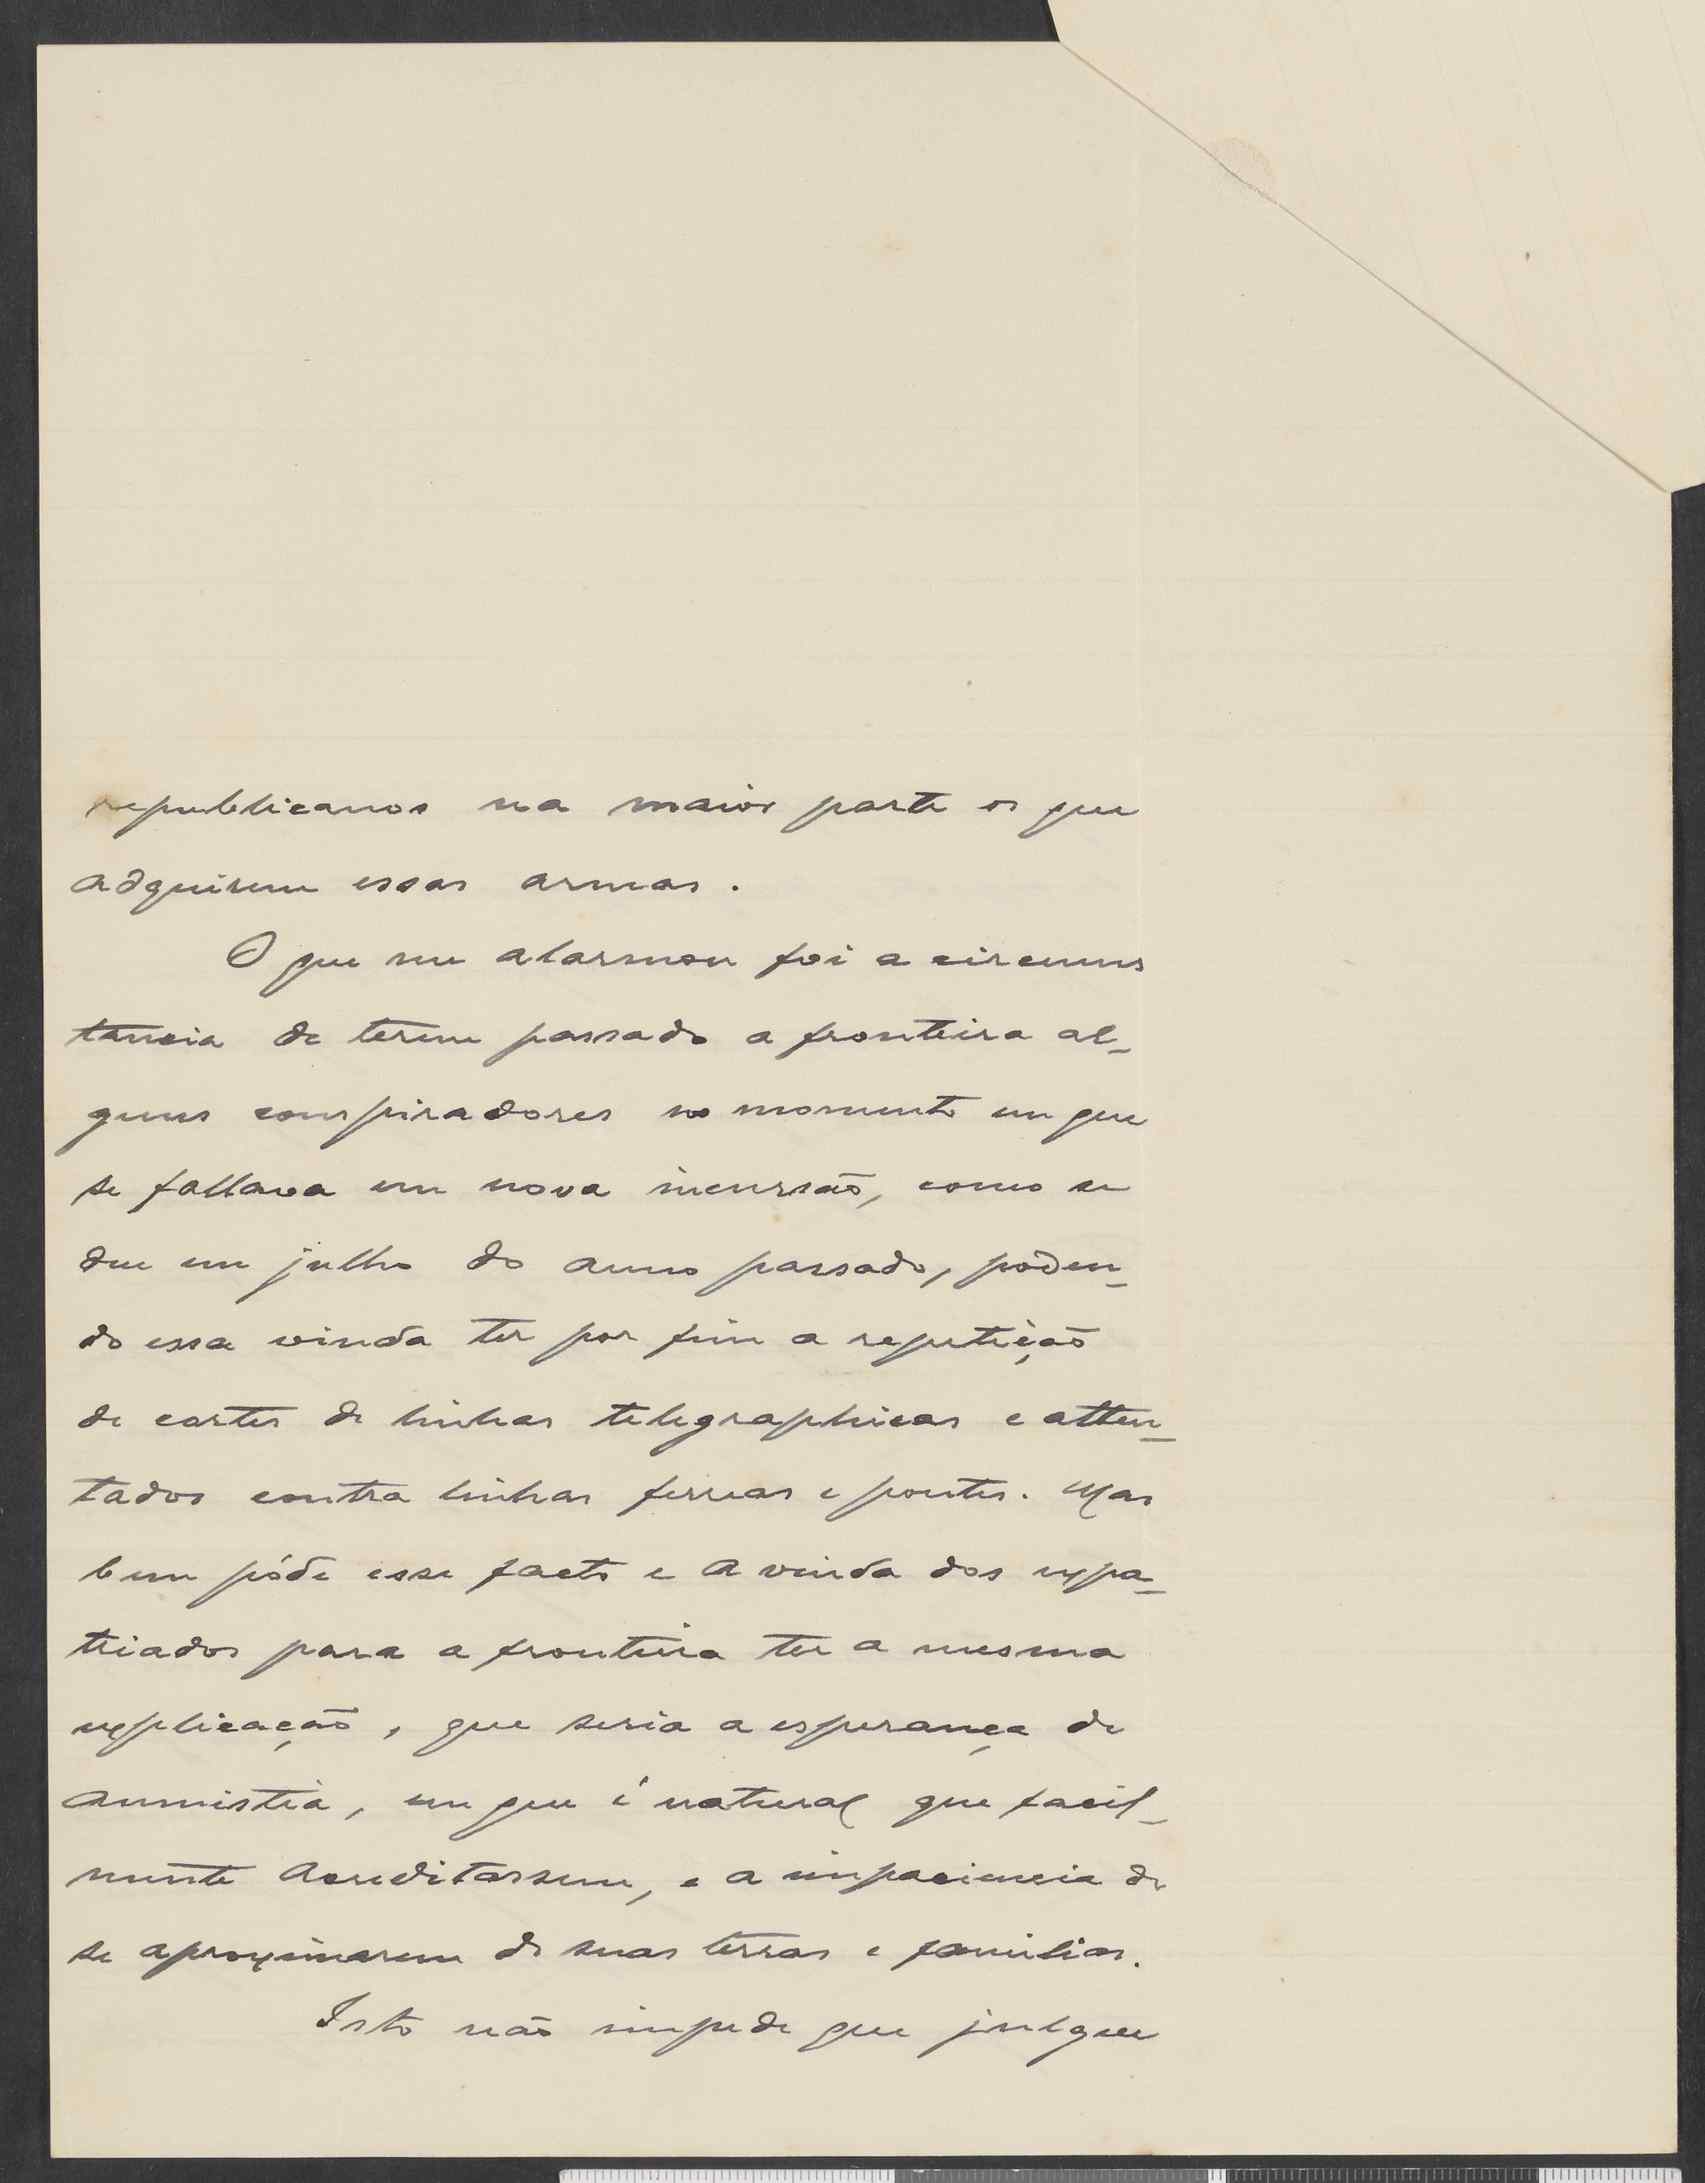 republicanos na maior parte os que
adquirem essas armas.
O que me alarmou foi a circums
tancia de terem passado a fronteira al-
guns conspiradores no momento em que
se fallava em nova incursão, como se
deu em julho do anno passado, poden-
do essa vinda ter por fim a repetição
de cortes de linhas telegraphicas e atten-
tados contra linhas ferreas e pontes. Mas
bem póde esse facto e a vinda dos expa-
triados para a fronteira ter a mesma
explicação, que seria a esperança de
amnistia, em que é natural que facil-
mente acreditassem, e a impaciencia de
se aproximarem de suas terras e familias.
Isto não impede que julgue